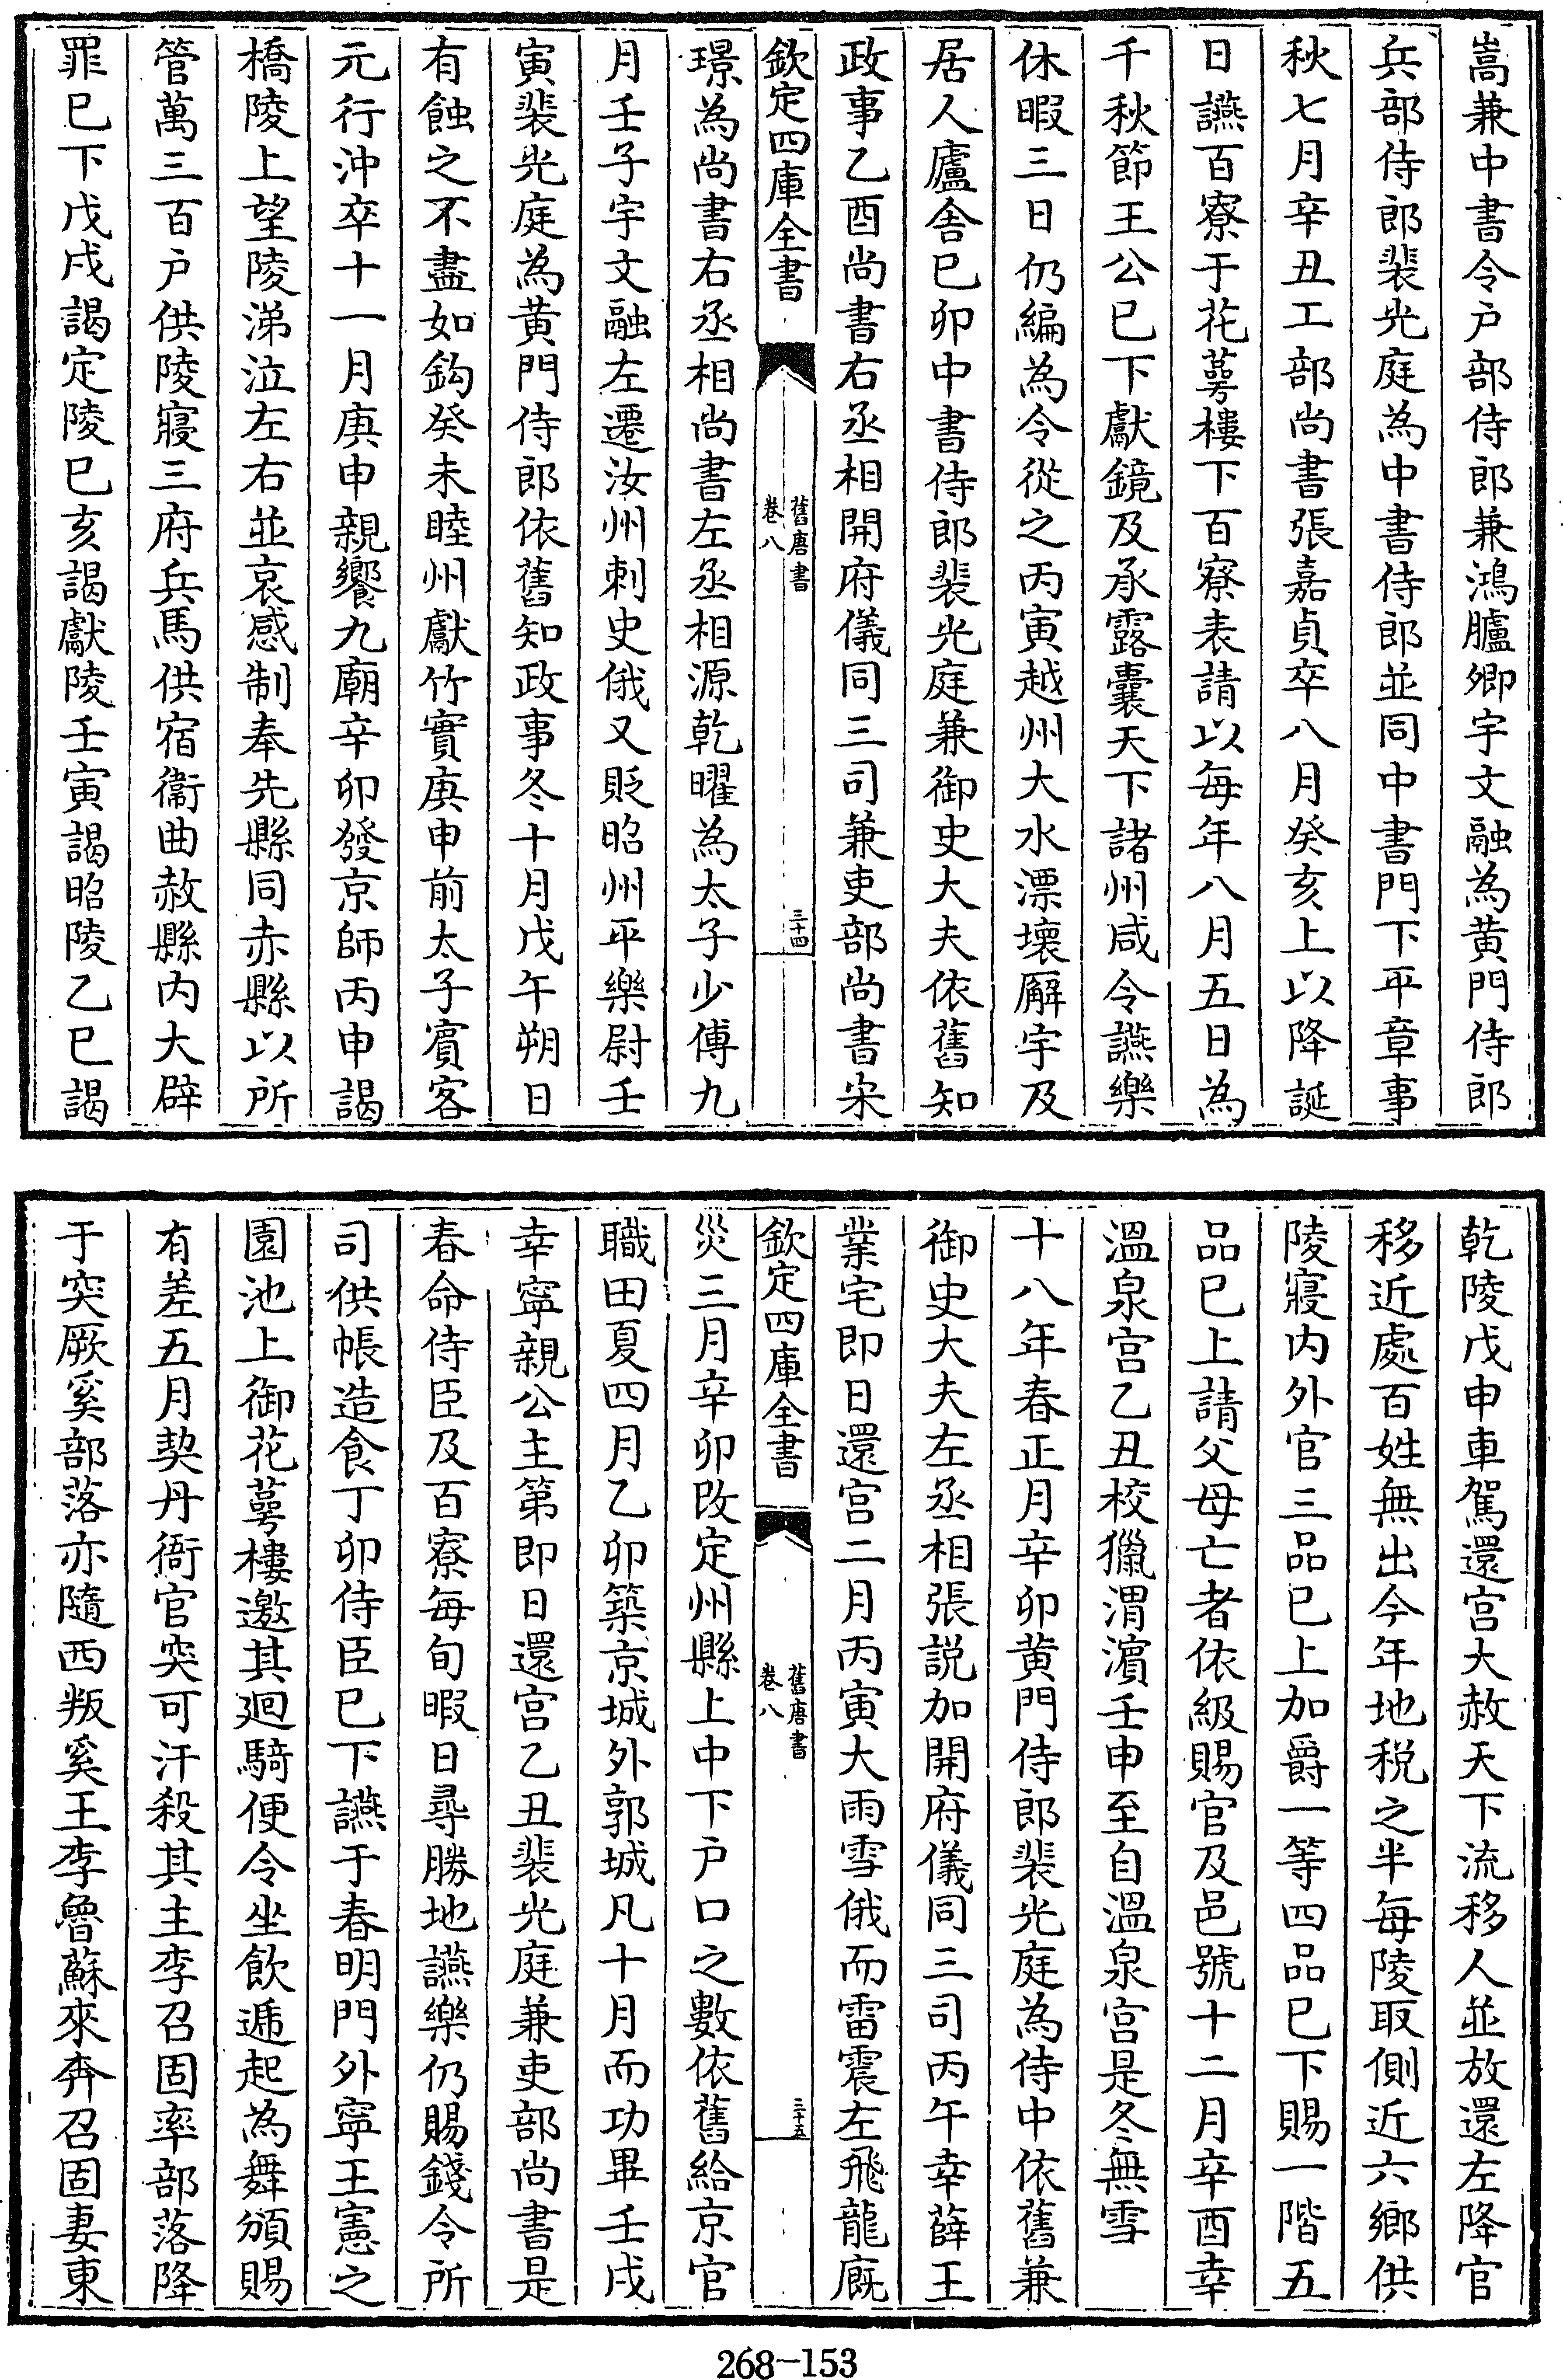 嵩兼中書令户部侍郎兼鴻臚卿宇文融為黄門侍郎
兵部侍郎裴光庭為中書侍郎並同中書門下平章事
秋七月辛丑工部尚書張嘉貞卒八月癸亥上以降誕
日讌百寮于花萼樓下百寮表請以每年八月五日為
千秋節王公已下獻鏡及承露囊天下諸州咸令讌樂
休暇三日仍編為令從之丙寅越州大水漂壞廨宇及
居人廬舍已卯中書侍郎裴光庭兼御史大夫依舊知
政事乙酉尚書右丞相開府儀同三司兼吏部尚書宋
欽定四庫全書
舊唐書
卷八
三十四
璟為尚書右丞相尚書左丞相源乾曜為太子少傅九
月壬子宇文融左遷汝州刺史俄又貶昭州平樂尉壬
寅裴光庭為黄門侍郎依舊知政事冬十月戊午朔日
有蝕之不盡如鈎癸未睦州獻竹實庚申前太子賓客
元行沖卒十一月庚申親饗九廟辛卯發京師丙申謁
橋陵上望陵涕泣左右並哀感制奉先縣同赤縣以所
管萬三百户供陵寢三府兵馬供宿衞曲赦縣内大辟
罪已下戊戌謁定陵已亥謁獻陵壬寅謁昭陵乙巳謁
乾陵戊申車駕還宫大赦天下流移人並放還左降官
移近處百姓無出今年地税之半每陵取側近六鄉供
陵寢内外官三品已上加爵一等四品已下賜一階五
品已上請父母亡者依級賜官及邑號十二月辛酉幸
溫泉宫乙丑校獵渭濱壬申至自溫泉宫是冬無雪
十八年春正月辛卯黄門侍郎裴光庭為侍中依舊兼
御史大夫左丞相張説加開府儀同三司丙午幸薛王
業宅即日還宫二月丙寅大雨雪俄而雷震左飛龍廐
欽定四庫全書
舊唐書
卷八
三十五
災三月辛卯改定州縣上中下户口之數依舊給京官
職田夏四月乙卯築京城外郭城凡十月而功畢壬戌
幸寧親公主第即日還宫乙丑裴光庭兼吏部尚書是
春命侍臣及百寮每旬暇日尋勝地讌樂仍賜錢令所
司供帳造食丁卯侍臣已下讌于春明門外寧王憲之
園池上御花萼樓邀其迴騎便令坐飲遞起為舞頒賜
有差五月契丹衙官突可汗殺其主李召固率部落降
于突厥奚部落亦隨西叛奚王李魯蘇來奔召固妻東
268-153